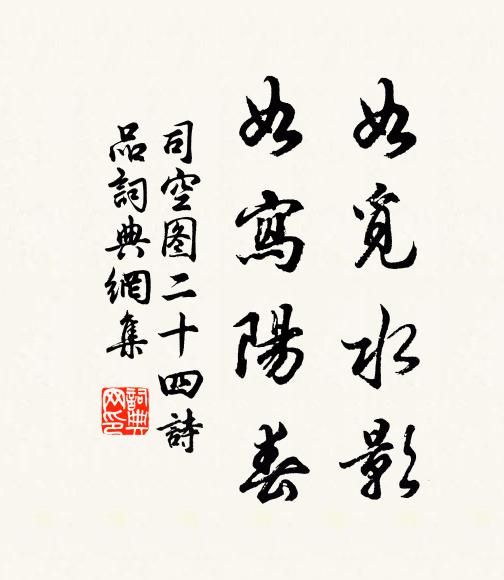 如覓水影
如寫陽春
司空图二十四詩
品詞典網集
詞典
网印